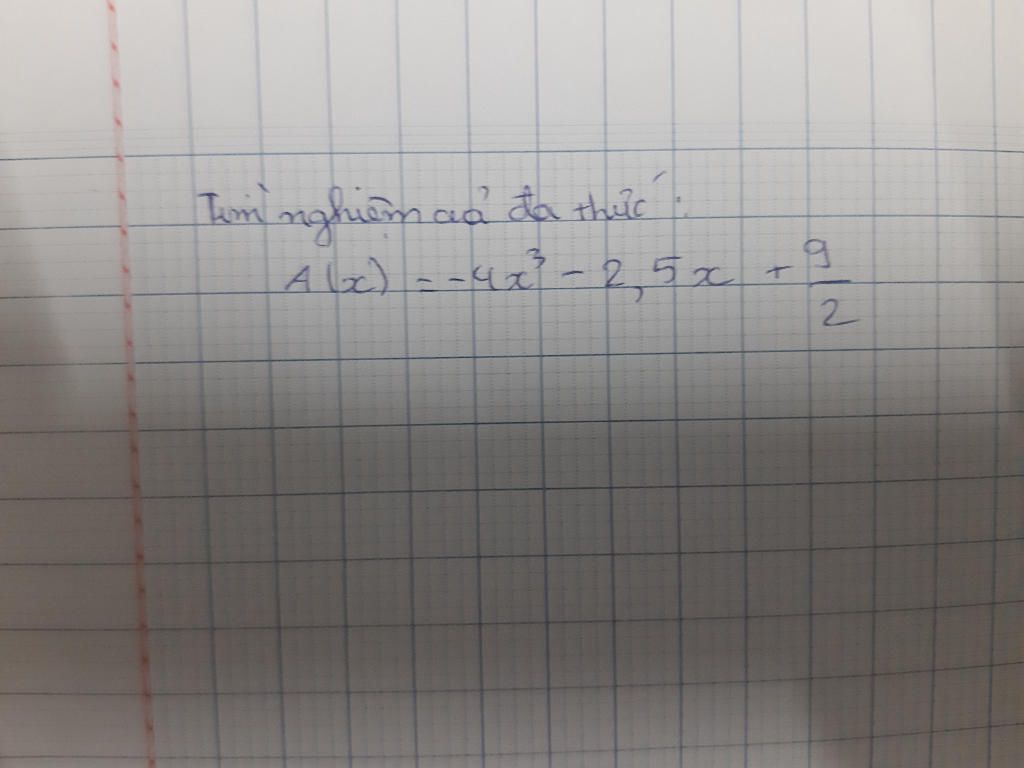 Tìm nghiệm của đa thức :
A(x) = -4x³ - 2,5x + 9/2